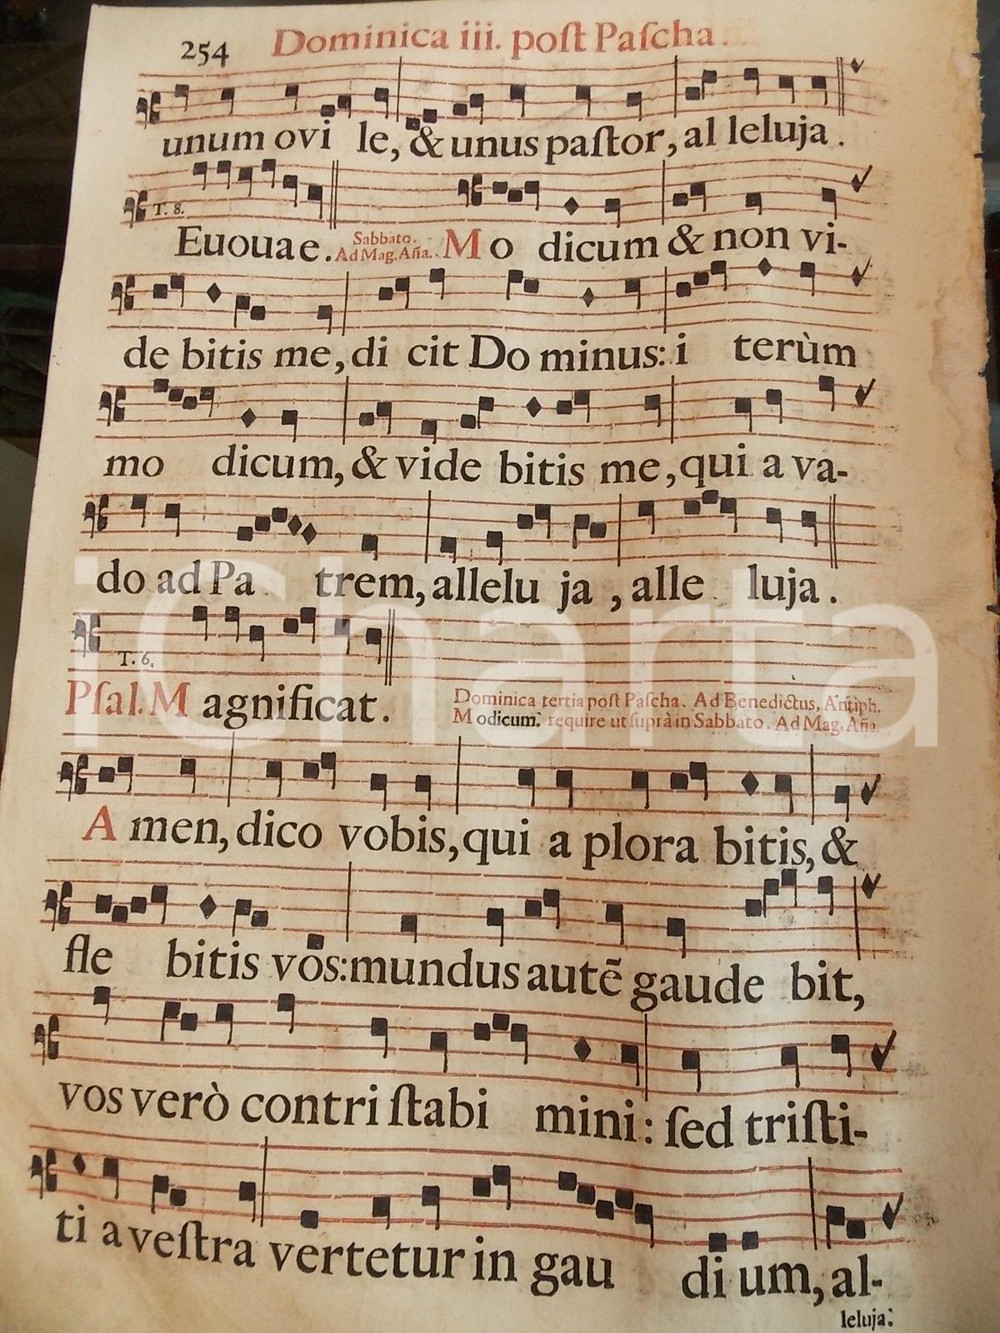 254 Dominica iii. poſt Paſcha.
unum ovi le, & unus paſtor, al leluja.
T. 8.
Euouae. Sabbato. Ad Mag. Aña. Mo dicum & non vi-
de bitis me, di cit Do minus: i terùm
mo dicum, & vide bitis me, qui a va-
do ad Pa trem, allelu ja, alle luja.
T. 6.
Pſal. Magnificat. Dominica tertia poſt Paſcha. Ad Benedictus, Antiph.
Modicum. require ut ſuprà in Sabbato. Ad Mag. Aña
Amen, dico vobis, qui a plora bitis, &
fle bitis vos: mundus autē gaude bit,
vos verò contri ſtabi mini: ſed triſti-
ti a veſtra vertetur in gau di um, al-
leluja:
iCharta